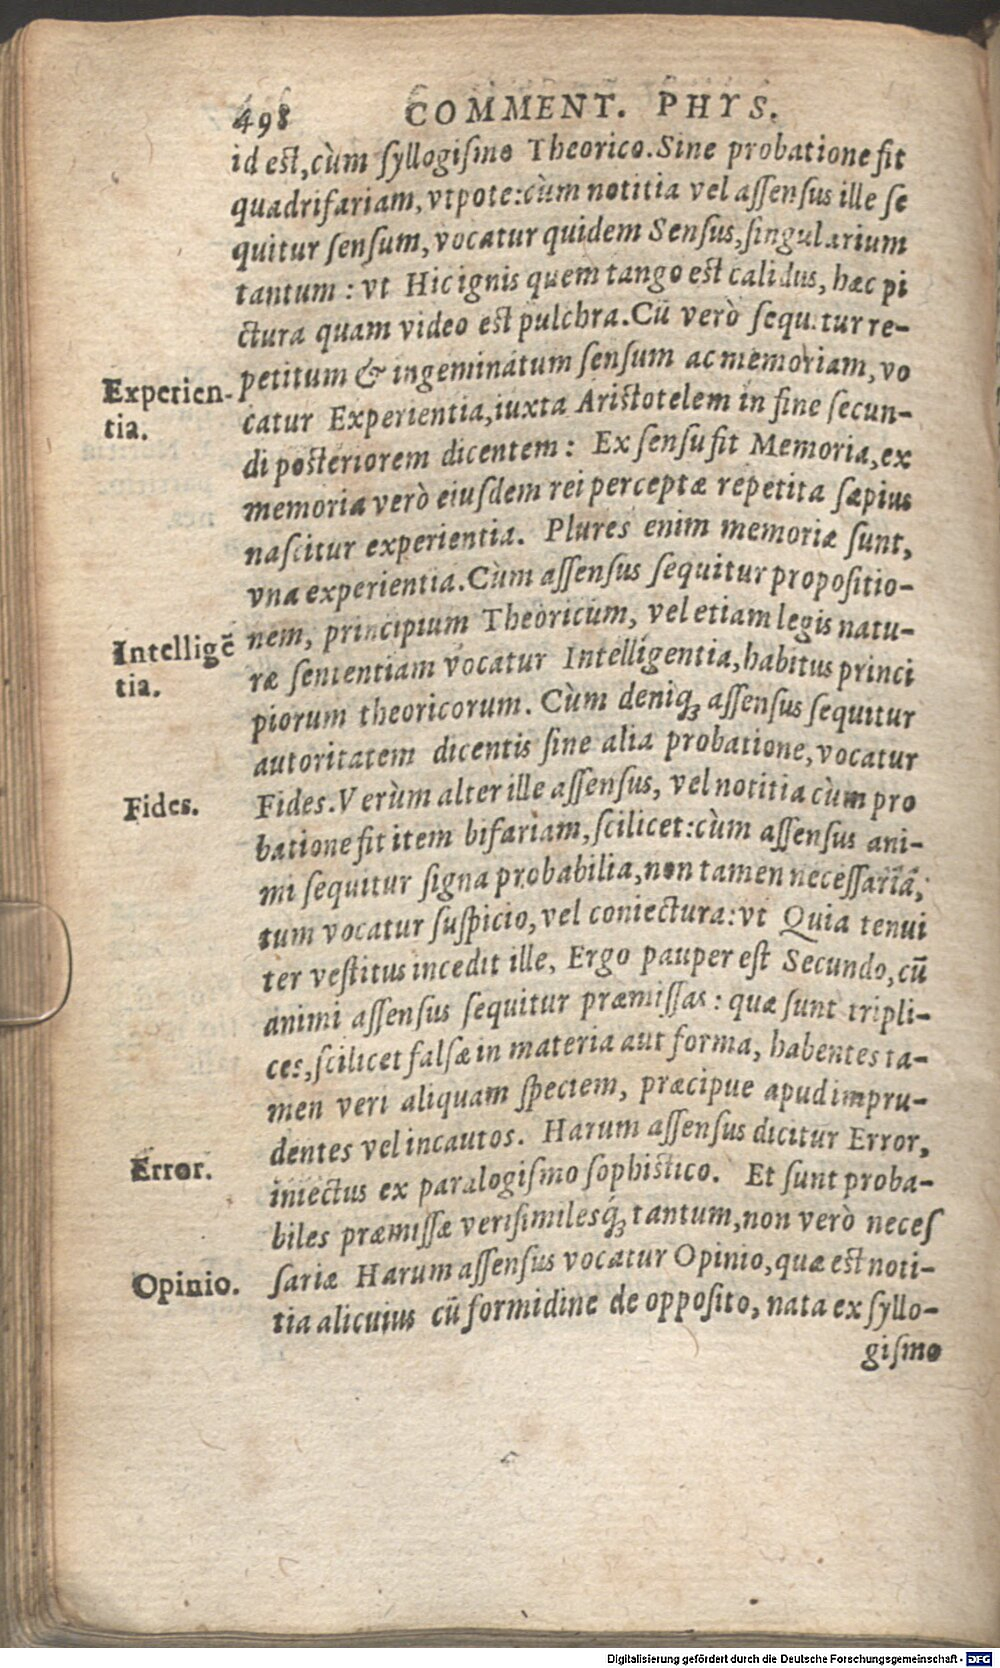 498 COMMENT. PHYS.
id est, cùm syllogismo Theorico. Sine probatione fit
quadrifariam, vtpote: cùm notitia vel assensus ille se
quitur sensum, vocatur quidem Sensus, singularium
tantum: vt Hic ignis quem tango est calidus, hæc pi
ctura quam video est pulchra. Cū verò sequitur re-
petitum & ingeminatum sensum ac memoriam, vo
Experien-
tia.
catur Experientia, iuxta Aristotelem in fine secun-
di posteriorem dicentem: Ex sensu fit Memoria, ex
memoria verò eiusdem rei perceptæ repetita sæpius
nascitur experientia. Plures enim memoriæ sunt,
vna experientia. Cùm assensus sequitur propositio-
nem, principium Theoricum, vel etiam legis natu-
Intelligē
tia.
ræ sententiam vocatur Intelligentia, habitus princi
piorum theoricorum. Cùm deniq; assensus sequitur
autoritatem dicentis sine alia probatione, vocatur
Fides.
Fides. Verùm alter ille assensus, vel notitia cùm pro
batione fit item bifariam, scilicet: cùm assensus ani-
mi sequitur signa probabilia, non tamen necessariā,
tum vocatur suspicio, vel coniectura: vt Quia tenui
ter vestitus incedit ille, Ergo pauper est Secundo, cū
animi assensus sequitur præmissas: quæ sunt tripli-
ces, scilicet falsæ in materia aut forma, habentes ta-
men veri aliquam speciem, præcipue apud impru-
dentes vel incautos. Harum assensus dicitur Error,
Error.
iniectus ex paralogismo sophistico. Et sunt proba-
biles præmissæ verisimilesq́; tantum, non verò neces
Opinio.
sariæ Harum assensus vocatur Opinio, quæ est noti-
tia alicuius cū formidine de opposito, nata ex syllo-
gismo
Digitalisierung gefördert durch die Deutsche Forschungsgemeinschaft - DFG